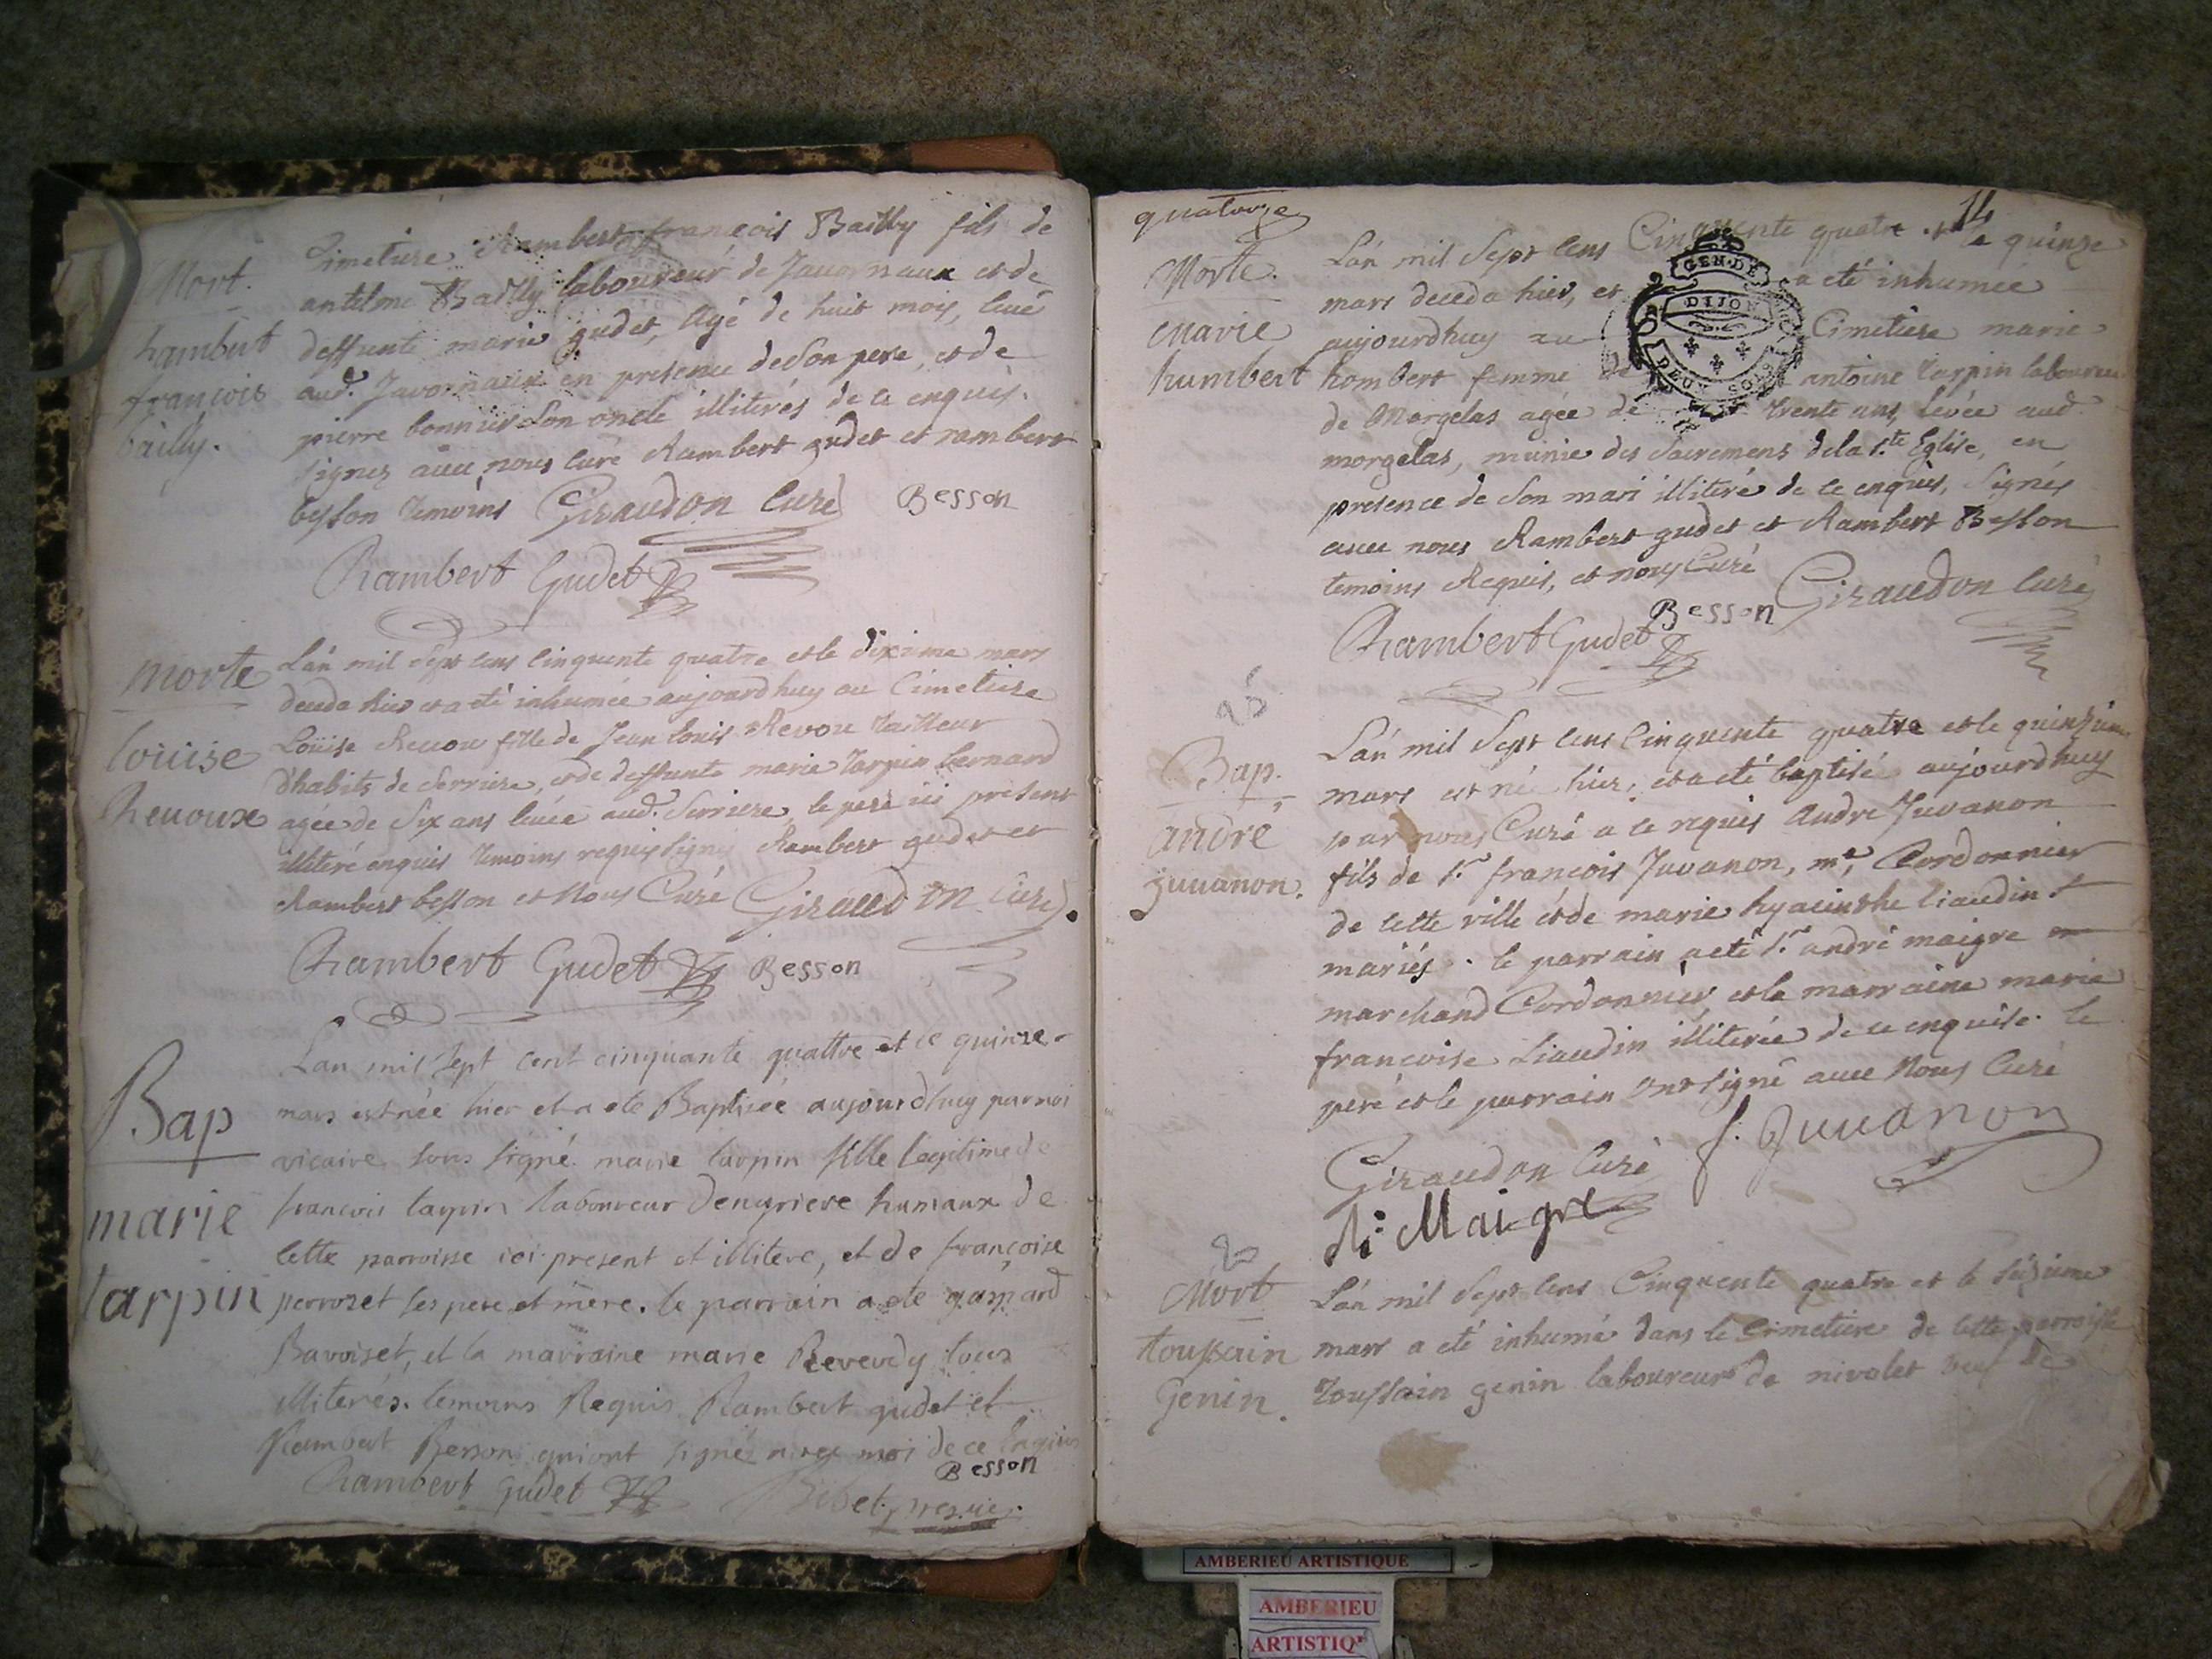 Mort.
Rambert
françois
bailly.
Cimetiere Rambert françois Bailly fils de
antelme Bailly laboureur de Javornaux et de
deffunte marie gudet, agé de huit moy, levé
aud. Javornaux en presence de son pere, et de
pierre bonnier son oncle illiterés de ce enquis.
signez avec nous curé Rambert gudet et rambert
besson temoins Giraudon Curé Besson
Rambert Gudet
morte
louise
Revoux
L'an mil sept cens cinquente quatre et le dixieme mars
deceda hier et a eté inhumée aujourdhuy au Cimetiere
Loüise Revou fille de Jean louis Revou tailleur
d'habits de Serriere, et de deffunte marie tarpin bernard
agée de six ans levée aud. Serriere, le pere ici present
illiteré enquis temoins requis signés Rambert gudet et
Rambert besson et Nous Curé Giraudon Curé
Rambert Gudet Besson
Bap
marie
tarpin
L'an mil sept cent cinquante quattre et le quinze
mars est née hier et a eté Baptisée aujourdhuy par moi
vicaire sous signé marie tarpin fille legitime de
francois tarpin laboureur humaux de
cette parroisse ici present et illitere, et de françoise
perrozet ses pere et mere. le parrain a eté gaspard
Bavozet, et la marraine marie Reverdy tous
illiterés. temoins Requis Rambert gudet et
Rambert Besson qui ont signés avec moi de ce Enquis
Besson
Rambert Gudet Bibet vic.
quatorze
14
Morte.
marie
humbert
L'an mil sept cens Cinquente quatre et le quinze
mars deceda hier, et a eté inhumée
aujourdhuy au Cimetiere marie
hombert femme de antoine tarpin laboureur
de Morgelas agée de trente ans, levée aud.
morgelas, munie des Sacremens de la Ste Eglise, en
presence de son mari illiteré de ce enquis, signés
avec nous Rambert gudet et Rambert Besson
temoins Requis, et nous Curé
GEN. DE
DIJON
DEUX SOLS
Besson Giraudon Curé
Rambert Gudet
Bap.
andré
juuanon.
L'an mil sept cens Cinquente quatre et le quinzieme
mars est né hier, et a eté baptisé aujourdhuy
par nous Curé a ce requis André Juvanon
fils de Sr françois Juvanon, me Cordonnier
de cette ville et de marie hyacinthe liaudin
mariés. le parrain a eté Sr andré maigre
marchand Cordonnier, et la marraine marie
francoise Liaudin illiterée de ce enquise. le
pere et le parrain ont signé avec Nous Curé
Giraudon Curé f. Juuanon
Maigre
Mort
toussain
Genin.
L'an mil sept cens Cinquente quatre et le seizieme
mars a eté inhumé dans le Cimetiere de cette parroisse
toussain genin laboureur de nivolet veuf de
AMBERIEU ARTISTIQUE
AMBERIEU
ARTISTIQ